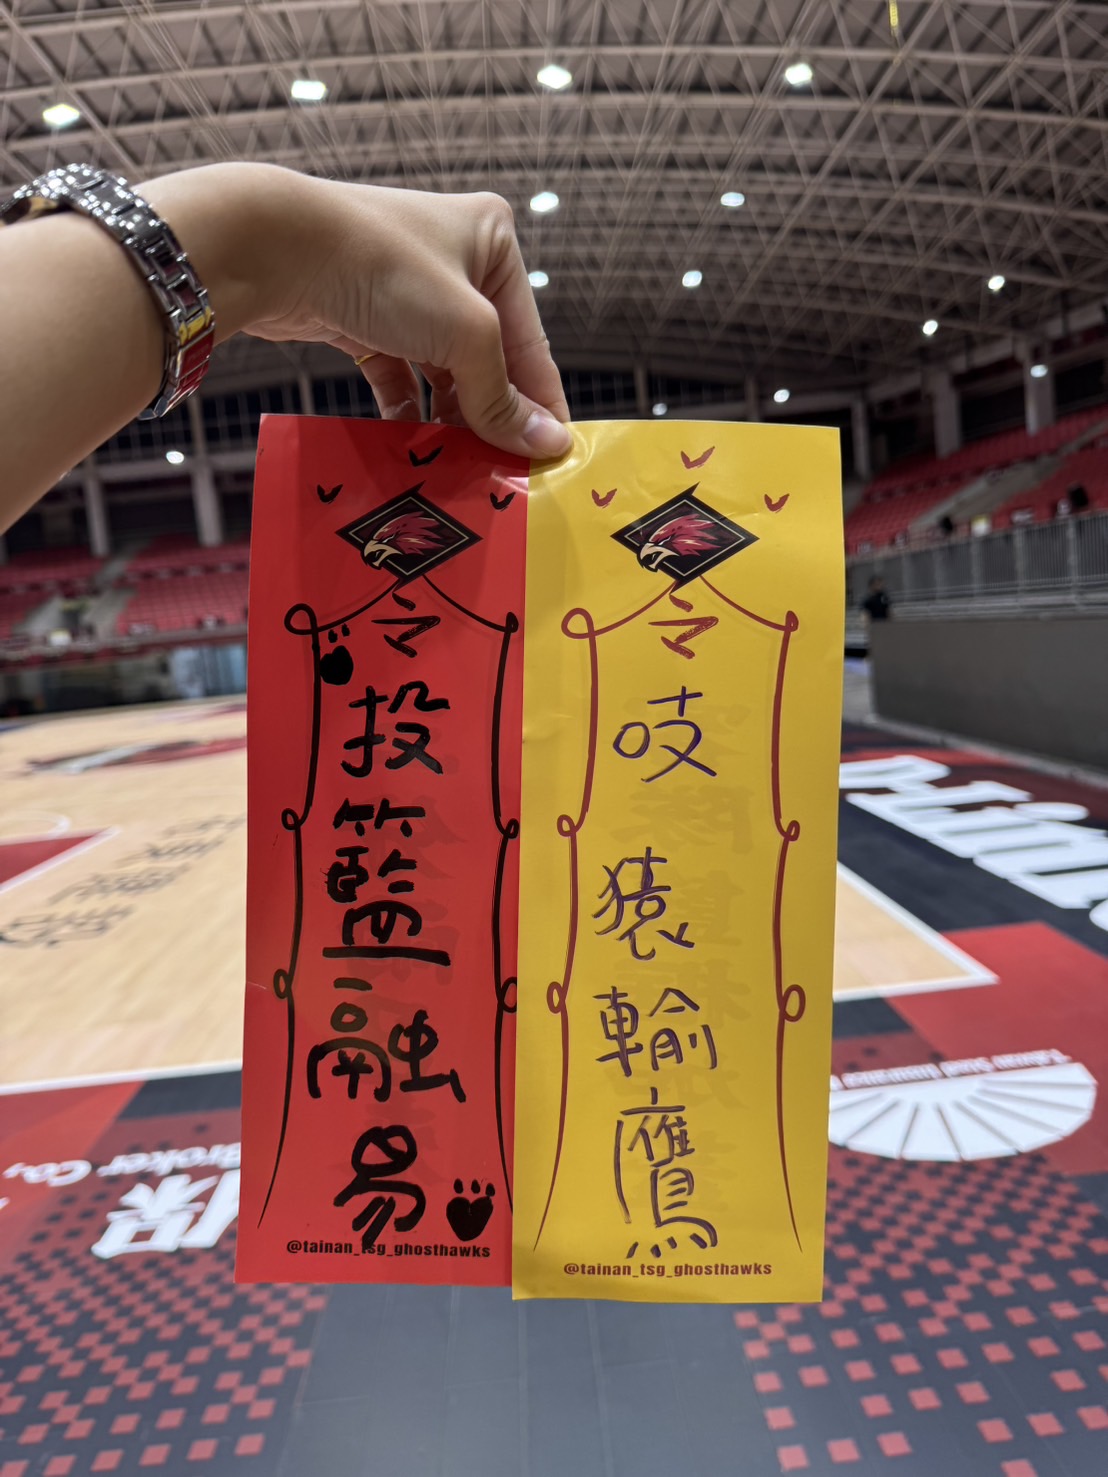 令
投
籃
融
易
@tainan_tsg_ghosthawks
令
吱
猿
輸
鷹
@tainan_tsg_ghosthawks
Broker Co.,
保